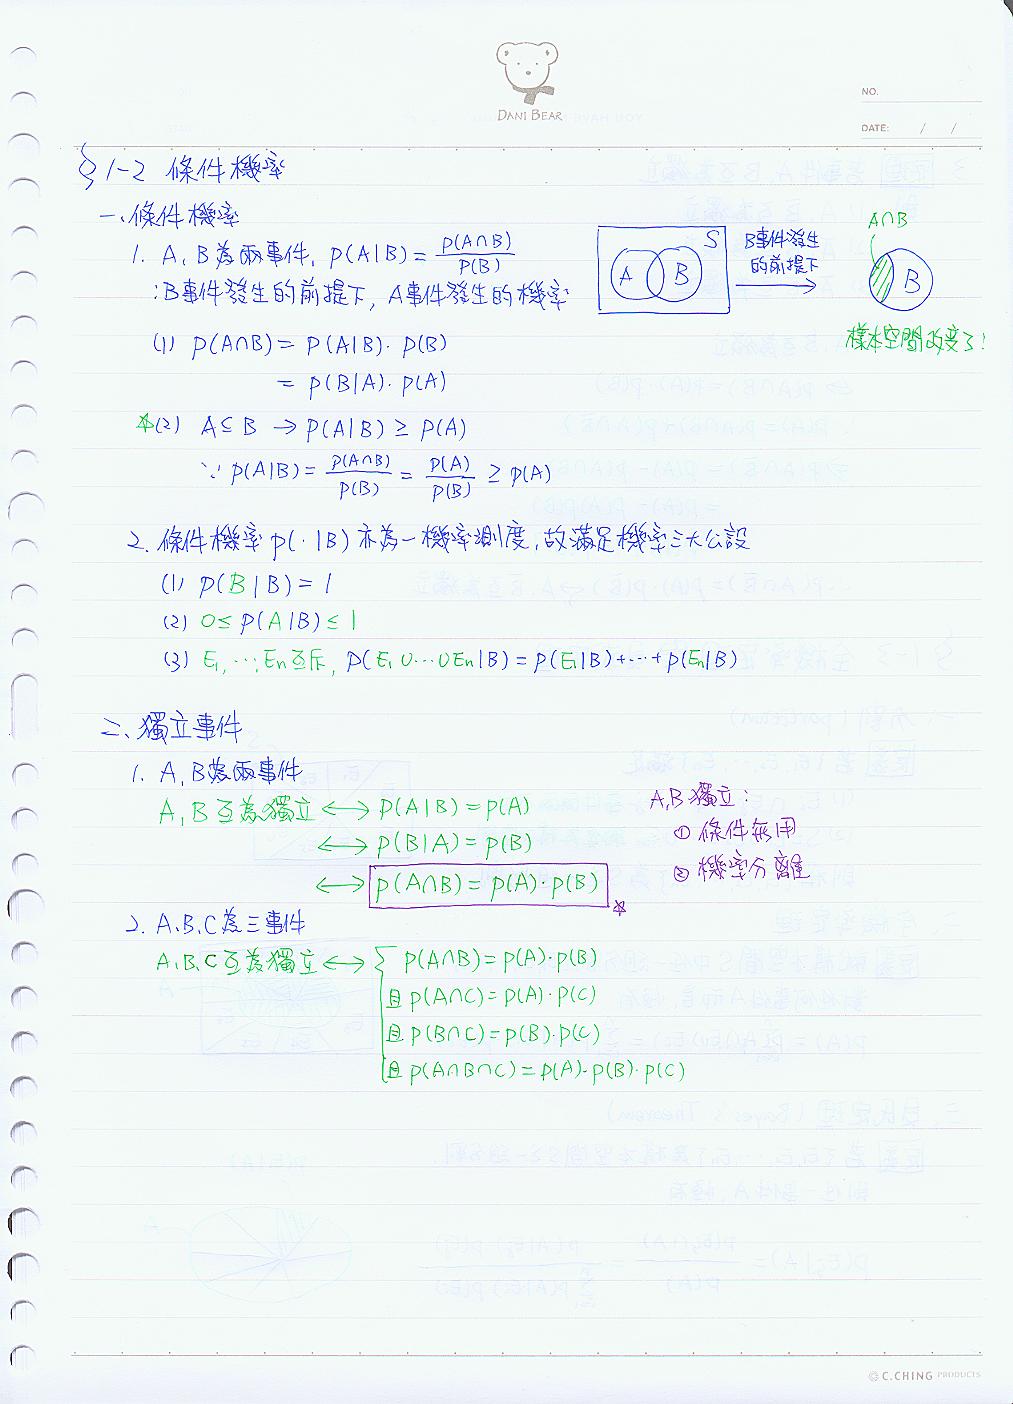 DANI BEAR
NO.
DATE: / /
§1-2 條件機率
一、條件機率
1. A, B為兩事件, P(A|B) = P(A∩B)/P(B)
:B事件發生的前提下, A事件發生的機率
S
A B
B事件發生
的前提下
A∩B
B
樣本空間改变了!
(1) P(A∩B) = P(A|B)·P(B)
= P(B|A)·P(A)
☆(2) A⊆B → P(A|B) ≥ P(A)
∵ P(A|B) = P(A∩B)/P(B) = P(A)/P(B) ≥ P(A)
2. 條件機率 P(·|B) 亦為一機率測度, 故滿足機率三大公設
(1) P(B|B) = 1
(2) 0 ≤ P(A|B) ≤ 1
(3) E1, …, En互斥, P(E1∪…∪En|B) = P(E1|B)+…+P(En|B)
二、獨立事件
1. A, B為兩事件
A, B互為獨立 ↔ P(A|B) = P(A)
↔ P(B|A) = P(B)
↔ P(A∩B) = P(A)·P(B) ☆
A,B獨立:
① 條件無用
② 機率分離
2. A.B.C為三事件
A.B.C互為獨立 ↔ { P(A∩B) = P(A)·P(B)
且 P(A∩C) = P(A)·P(C)
且 P(B∩C) = P(B)·P(C)
且 P(A∩B∩C) = P(A)·P(B)·P(C)
C.CHING PRODUCTS